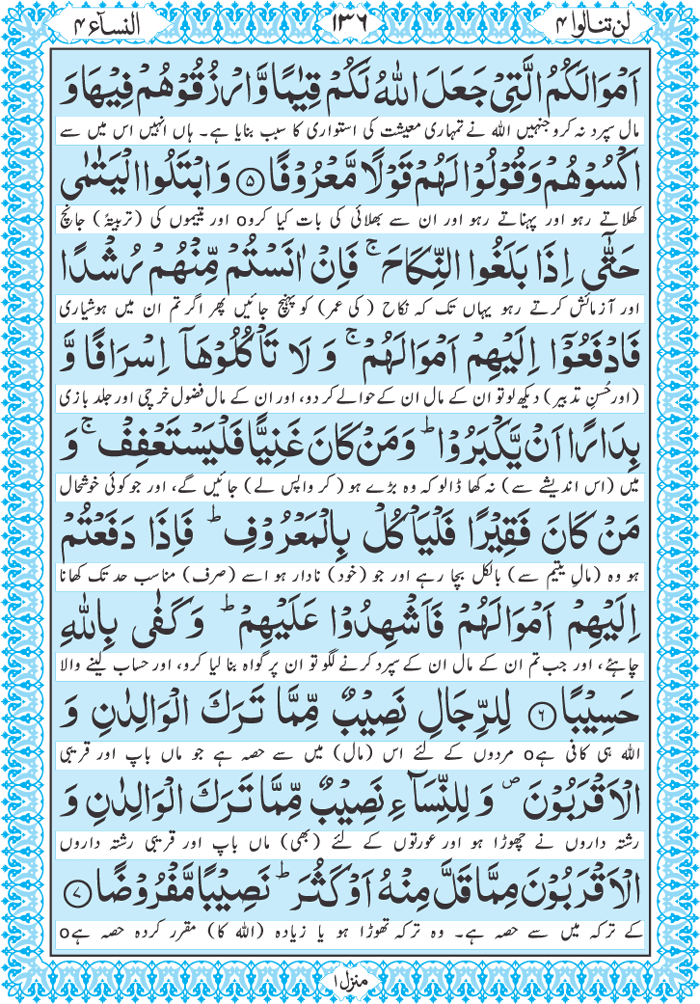 لن تنالوا ۴
۱۳۶
النسآء ۴
اَمۡوَالَكُمُ الَّتِىۡ جَعَلَ اللّٰهُ لَـكُمۡ قِيٰمًا وَّارۡزُقُوۡهُمۡ فِيۡهَا وَ
مال سپرد نہ کرو جنہیں اللہ نے تمہاری معیشت کی استواری کا سبب بنایا ہے۔ ہاں انہیں اس میں سے
اكۡسُوۡهُمۡ وَقُوۡلُوۡا لَهُمۡ قَوۡلًا مَّعۡرُوۡفًا ۵ وَابۡتَلُوا الۡيَتٰمٰى
کھلاتے رہو اور پہناتے رہو اور ان سے بھلائی کی بات کیا کروo اور یتیموں کی (تربیتہً) جانچ
حَتّٰٓى اِذَا بَلَغُوا النِّكَاحَ‌ ۚ فَاِنۡ اٰنَسۡتُمۡ مِّنۡهُمۡ رُشۡدًا
اور آزمائش کرتے رہو یہاں تک کہ نکاح (کی عمر) کو پہنچ جائیں پھر اگر تم ان میں ہوشیاری
فَادۡفَعُوۡۤا اِلَيۡهِمۡ اَمۡوَالَهُمۡ‌ ۚ وَ لَا تَاۡكُلُوۡهَاۤ اِسۡرَافًا وَّ
(اور حُسنِ تدبیر) دیکھ لو تو ان کے مال ان کے حوالے کر دو، اور ان کے مال فضول خرچی اور جلد بازی
بِدَارًا اَنۡ يَّكۡبَرُوۡا‌ ؕ وَمَنۡ كَانَ غَنِيًّا فَلۡيَسۡتَعۡفِفۡ‌ ۚ وَ
میں (اس اندیشے سے) نہ کھا ڈالو کہ وہ بڑے ہو (کر واپس لے) جائیں گے، اور جو کوئی خوشحال
مَنۡ كَانَ فَقِيۡرًا فَلۡيَاۡكُلۡ بِالۡمَعۡرُوۡفِ‌ ؕ فَاِذَا دَفَعۡتُمۡ
ہو وہ (مالِ یتیم سے) بالکل بچا رہے اور جو (خود) نادار ہو اسے (صرف) مناسب حد تک کھانا
اِلَيۡهِمۡ اَمۡوَالَهُمۡ فَاَشۡهِدُوۡا عَلَيۡهِمۡ‌ ؕ وَكَفٰى بِاللّٰهِ
چاہئے، اور جب تم ان کے مال ان کے سپرد کرنے لگو تو ان پر گواہ بنا لیا کرو، اور حساب لینے والا
حَسِيۡبًا ۶ لِلرِّجَالِ نَصِيۡبٌ مِّمَّا تَرَكَ الۡوَالِدٰنِ وَ
اللہ ہی کافی ہےo مردوں کے لئے اس (مال) میں سے حصہ ہے جو ماں باپ اور قریبی
الۡاَقۡرَبُوۡنَ ۪ وَلِلنِّسَآءِ نَصِيۡبٌ مِّمَّا تَرَكَ الۡوَالِدٰنِ وَ
رشتہ داروں نے چھوڑا ہو اور عورتوں کے لئے (بھی) ماں باپ اور قریبی رشتہ داروں
الۡاَقۡرَبُوۡنَ مِمَّا قَلَّ مِنۡهُ اَوۡ كَثُرَ ‌ؕ نَصِيۡبًا مَّفۡرُوۡضًا ۷
کے ترکہ میں سے حصہ ہے۔ وہ ترکہ تھوڑا ہو یا زیادہ (اللہ کا) مقرر کردہ حصہ ہےo
منزل ۱